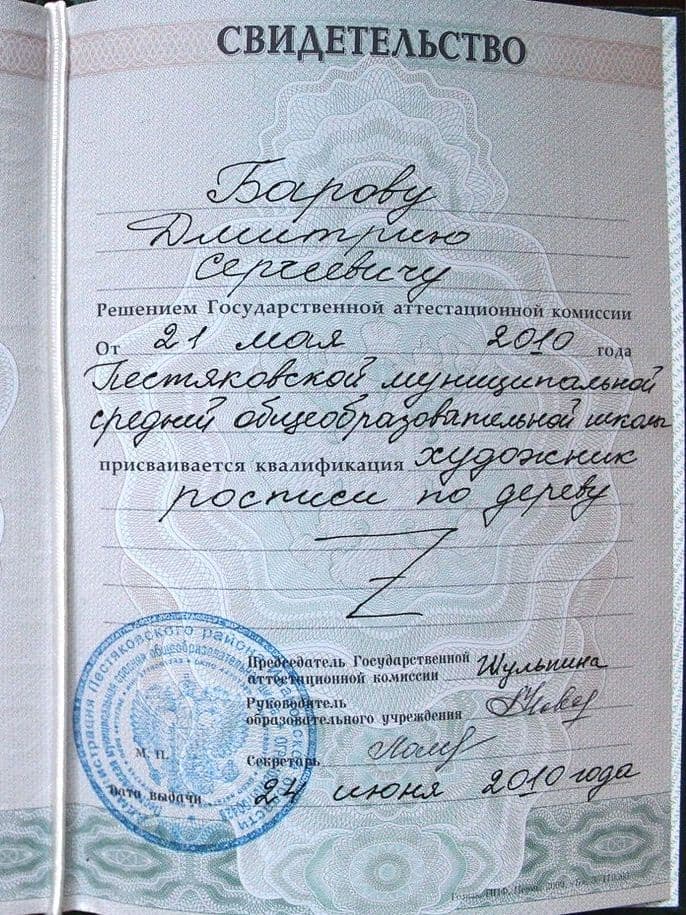 СВИДЕТЕЛЬСТВО
Барову
Дмитрию
Сергеевичу
Решением Государственной аттестационной комиссии
От 21 мая 2010 года
Пестяковской муниципальной
средней общеобразовательной школы
присваивается квалификация художник
росписи по дереву
Председатель Государственной
аттестационной комиссии Шульпина
Руководитель
образовательного учреждения
М. П.
Секретарь
Дата выдачи 24 июня 2010 года